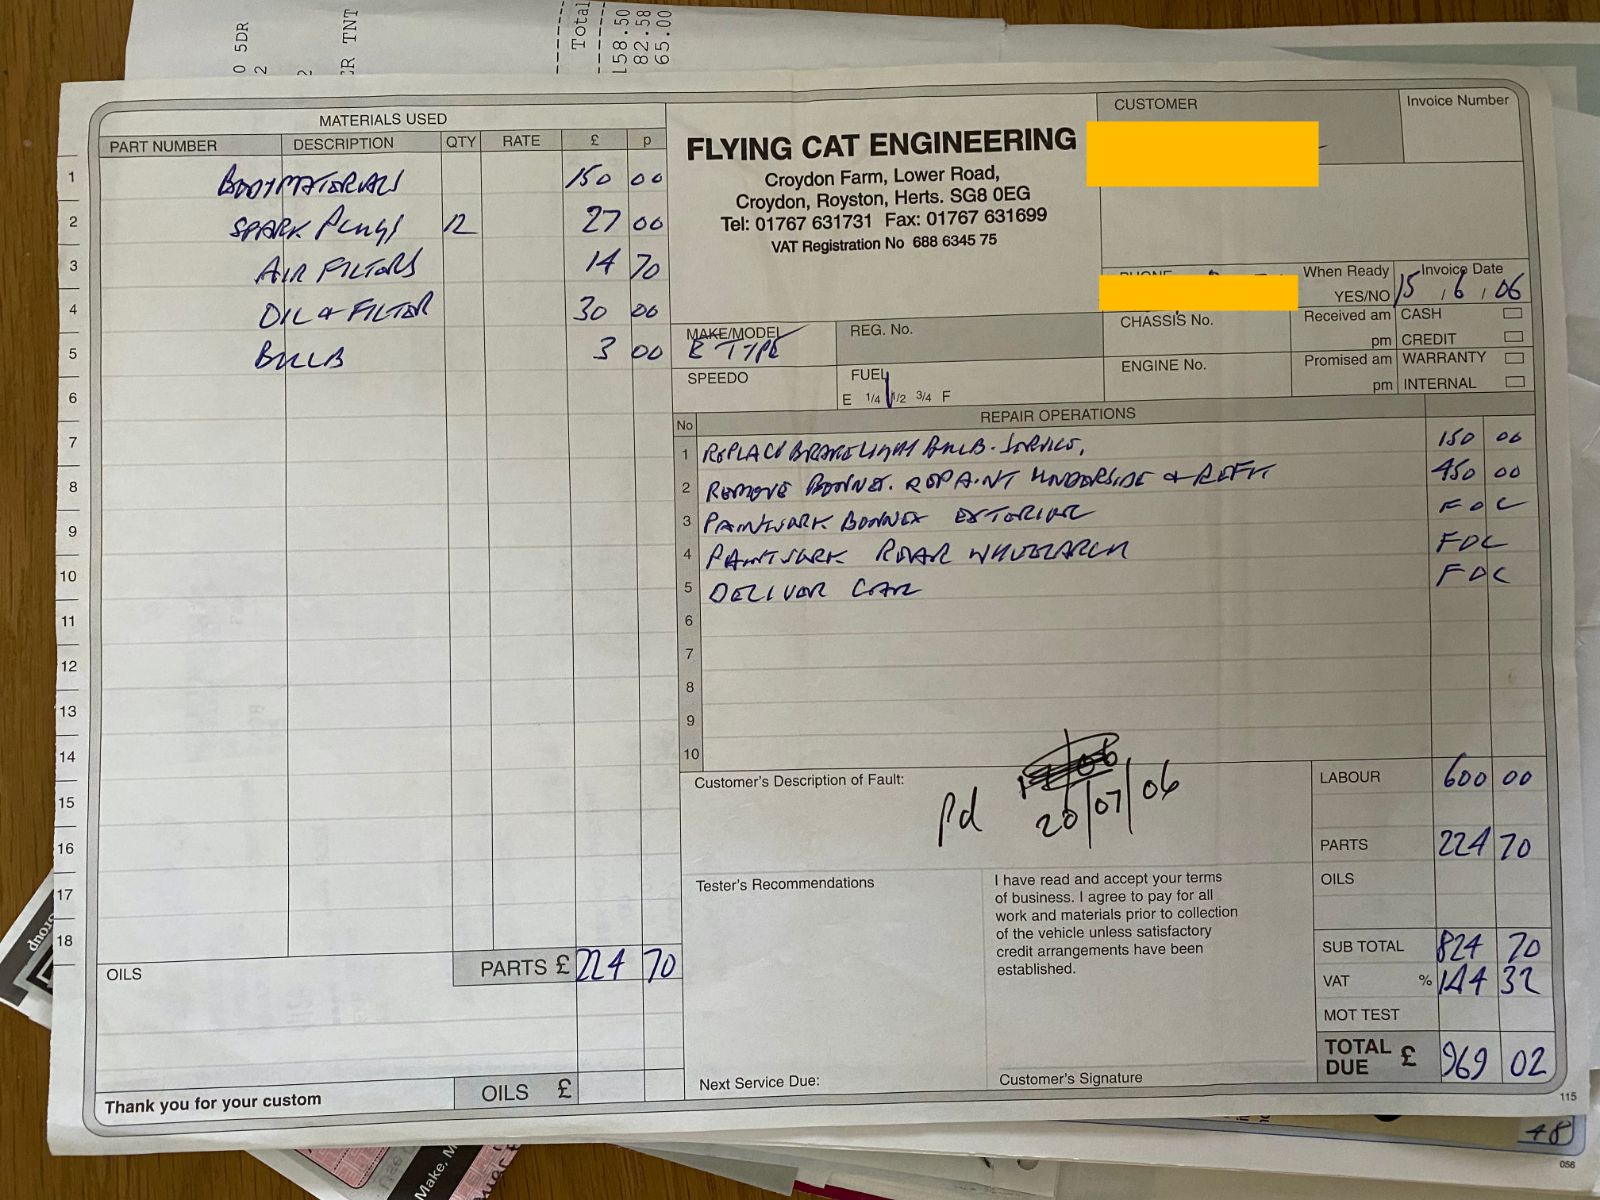 0 5DR
2
2
ER TNT
Total
158.50
82.58
65.00
MATERIALS USED
PART NUMBER DESCRIPTION QTY RATE £ p
1 BODYMATERIALS 150 00
2 SPARK Plugs 12 27 00
3 AIR FILTORS 14 70
4 OIL & FILTER 30 00
5 BULB 3 00
6
7
8
9
10
11
12
13
14
15
16
17
18
PARTS £ 224 70
OILS
OILS £
Thank you for your custom
FLYING CAT ENGINEERING
Croydon Farm, Lower Road,
Croydon, Royston, Herts. SG8 0EG
Tel: 01767 631731 Fax: 01767 631699
VAT Registration No 688 6345 75
CUSTOMER
Invoice Number
PHONE
When Ready
YES/NO
Invoice Date
15 / 6 / 06
MAKE/MODEL
E TYPE
REG. No.
CHASSIS No.
Received am
pm
CASH
CREDIT
SPEEDO
FUEL
E 1/4 1/2 3/4 F
ENGINE No.
Promised am
pm
WARRANTY
INTERNAL
No REPAIR OPERATIONS
1 REPLACE BRAKELIGHT BULB. SERVICE. 150 00
2 REMOVE BONNET. REPAINT UNDERSIDE & REFIT 450 00
3 PAINTWORK BONNET EXTERIOR FOC
4 PAINTWORK REAR WHEELARCH FOC
5 DELIVER CAR FOC
6
7
8
9
10
Customer's Description of Fault:
Pd 20/07/06
LABOUR 600 00
PARTS 224 70
OILS
SUB TOTAL 824 70
VAT % 144 32
MOT TEST
TOTAL DUE £ 969 02
Tester's Recommendations
I have read and accept your terms
of business. I agree to pay for all
work and materials prior to collection
of the vehicle unless satisfactory
credit arrangements have been
established.
Next Service Due:
Customer's Signature
115
48
056
Make, M